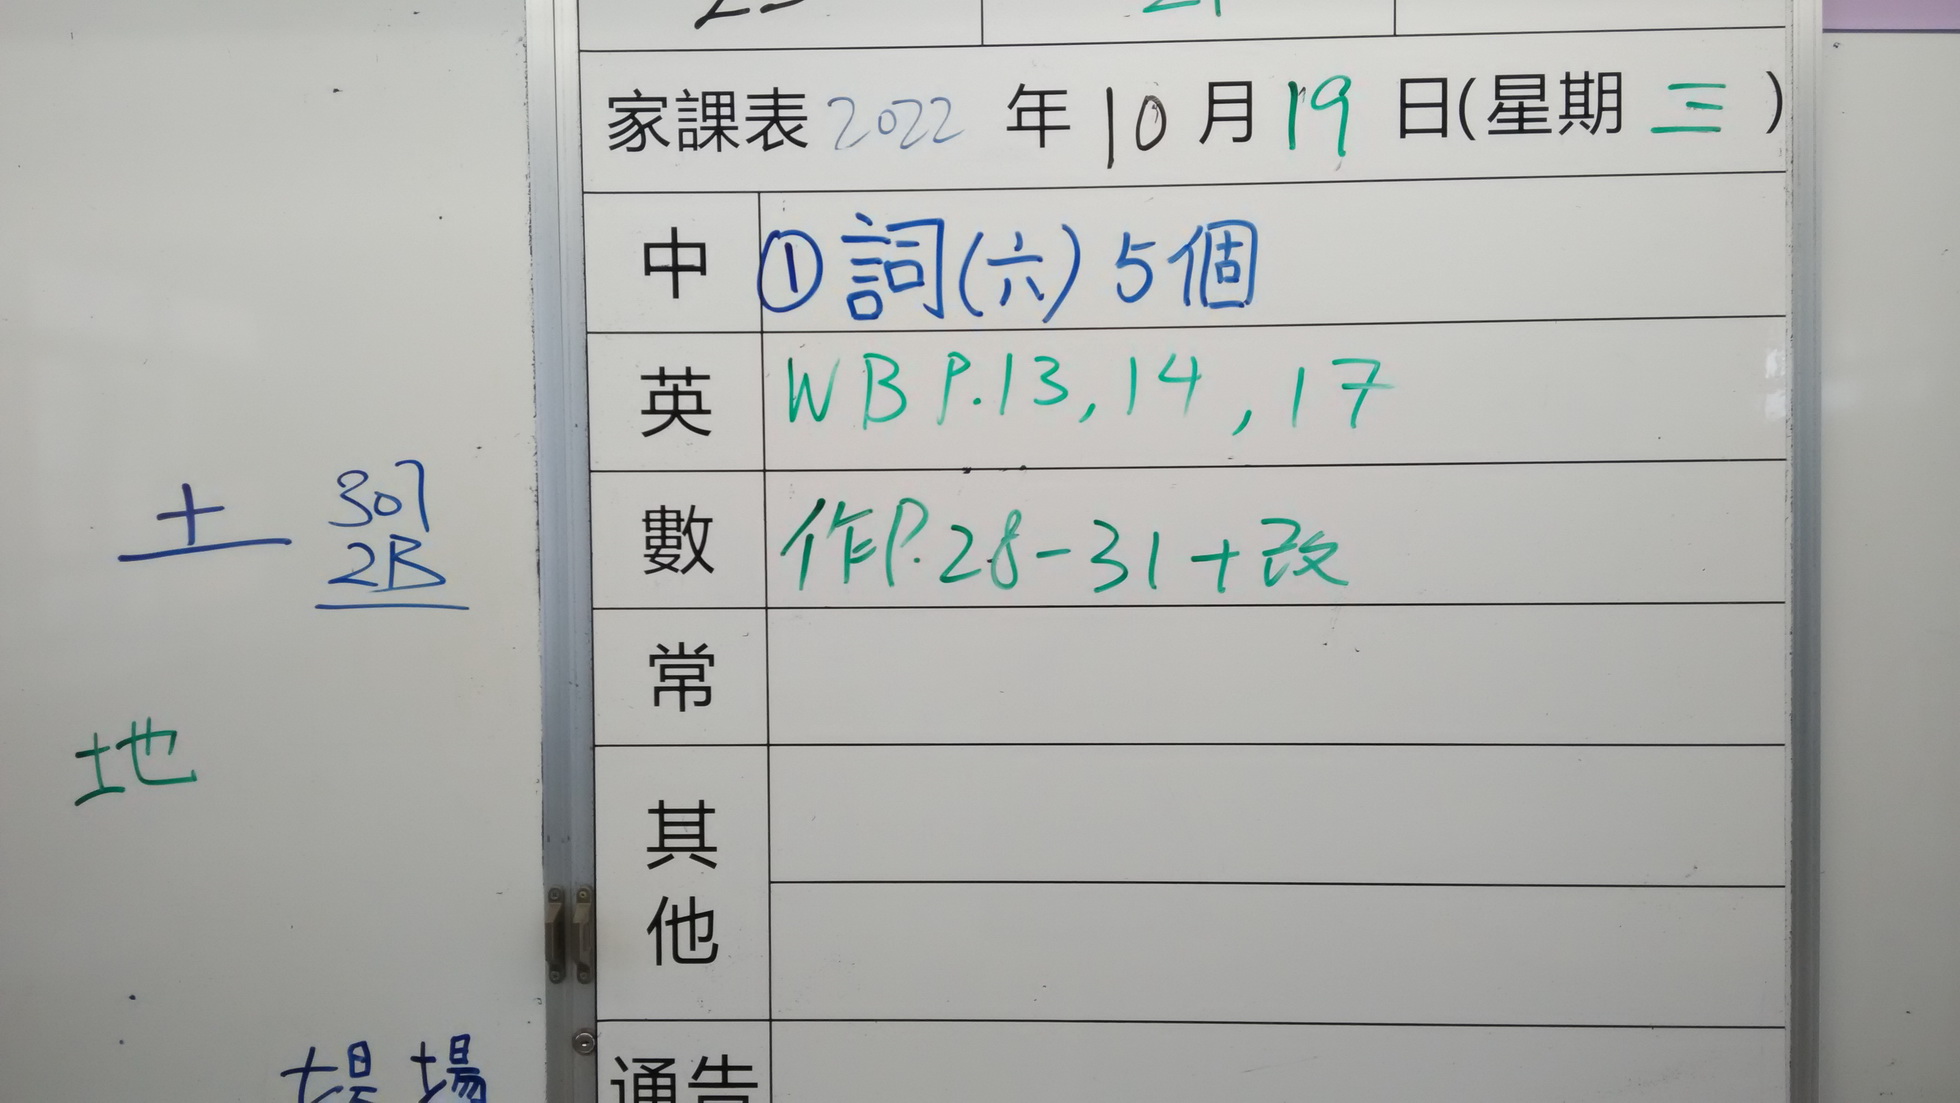 家課表 2022 年 10 月 19 日(星期 三 )
中 ① 詞(六) 5個
英 WB P.13, 14, 17
數 作P.28-31+改
常
其他
通告
土 307
2B
地
場 場